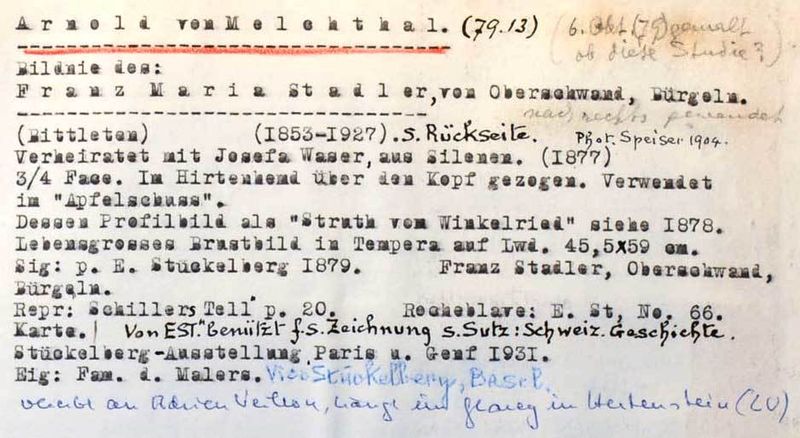 Arnold von Melchthal. (79.13) (6. Okt (79) gemalt
ob diese Studie?)
Bildnis des:
Franz Maria Stadler, von Oberschwand, Bürgeln.
nach rechts gewendet
(Bittleten) (1853-1927). s. Rückseite. Phot. Speiser 1904.
Verheiratet mit Josefa Waser, aus Silenen. (1877)
3/4 Face. Im Hirtenhemd über den Kopf gezogen. Verwendet
im "Apfelschuss".
Dessen Profilbild als "Struth von Winkelried" siehe 1878.
Lebensgrosses Brustbild in Tempera auf Lwd. 45,5x59 cm.
Sig: p. E. Stückelberg 1879. Franz Stadler, Oberschwand,
Bürgeln.
Repr: Schillers Tell p. 20. Rocheblave: E. St, No. 66.
Karte. Von EST. benützt f. s. Zeichnung s. Sutz: Schweiz. Geschichte.
Stückelberg-Ausstellung Paris u. Genf 1931.
Eig: Fam. d. Malers. Vico Stückelberg, Basel.
an Adrien Veillon, hängt im in Hertenstein (LU)